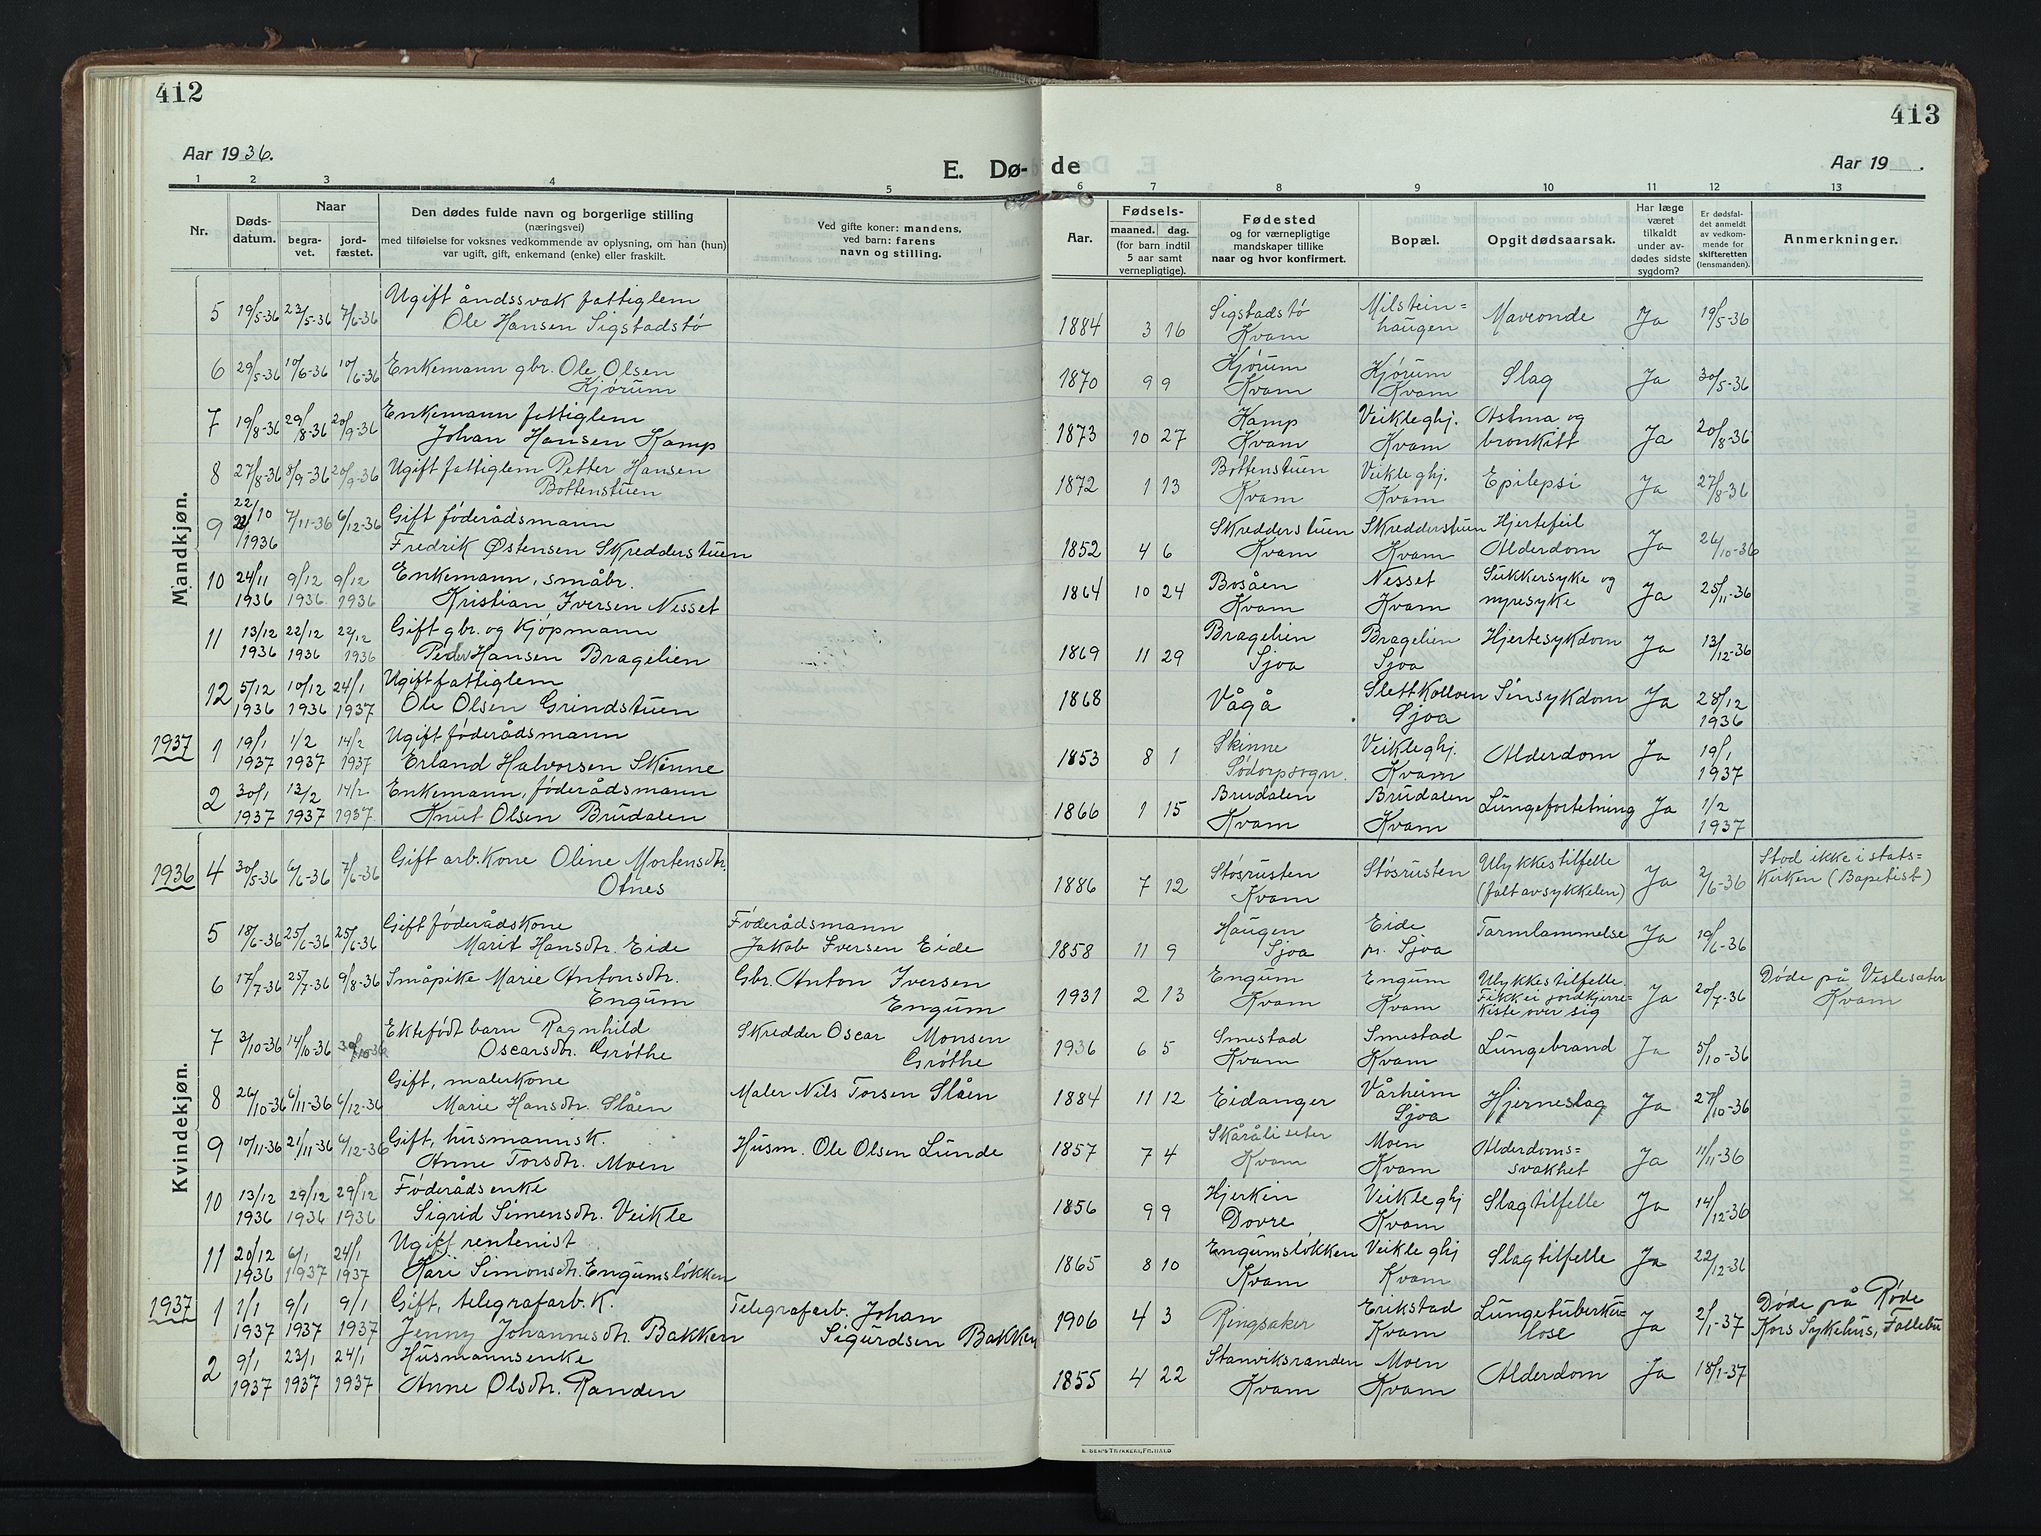 412
413
Aar 1936.
E. Dø-
de
Aar 19 .
1 2 3 4 5 6 7 8 9 10 11 12 13
Nr.
Døds-
datum.
Naar
begra-
vet.
jord-
fæstet.
Den dødes fulde navn og borgerlige stilling
(næringsvei)
med tilføielse for voksnes vedkommende av oplysning, om han (hun)
var ugift, gift, enkemand (enke) eller fraskilt.
Ved gifte koner: mandens,
ved barn: farens
navn og stilling.
Aar.
Fødsels-
maaned. dag.
(for barn indtil
5 aar samt
vernepligtige).
Fødested
og for værnepligtige
mandskaper tillike
naar og hvor konfirmert.
Bopæl.
Opgit dødsaarsak.
Har læge
været
tilkaldt
under av-
dødes sidste
sygdom?
Er dødsfal-
det anmeldt
av vedkom-
mende for
skifteretten
(lensmanden).
Anmerkninger.
Mandkjøn.
5 19/5-36 23/5-36 7/6-36 Ugift åndssvak fattiglem
Ole Hansen Sigstadstø
1884 3 16 Sigstadstø Kvam Milstein=haugen Maveonde Ja 19/5-36
6 29/5-36 10/6-36 10/6-36 Enkemann gbr. Ole Olsen
Kjørum
1870 9 9 Kjørum Kvam Kjørum Kvam Slag Ja 30/5-36
7 19/8-36 29/8-36 20/9-36 Enkemann fattiglem
Johan Hansen Kamp
1873 10 27 Kamp Kvam Veikleghj. Kvam Astma og bronkitt Ja 20/8-36
8 27/8-36 8/9-36 20/9-36 Ugift fattiglem Petter Hansen
Bottenstuen
1872 1 13 Bottenstuen Kvam Veikleghj. Kvam Epilepsi Ja 27/8-36
9 22/10 1936 7/11-36 6/12-36 Gift føderådsmann
Fredrik Østensen Skredderstuen
1852 4 6 Skredderstuen Kvam Skredderstuen Kvam Hjertefeil Alderdom Ja 26/10-36
10 24/11 1936 9/12 1936 9/12 1936 Enkemann, småbr.
Kristian Iversen Nesset
1864 10 24 Bosåen Kvam Nesset Kvam Sukkersyke og nyresyke Ja 25/11-36
11 13/12 1936 22/12 1936 22/12 1936 Gift gbr. og Kjøpmann
Peder Hansen Bragelien
1869 11 29 Bragelien Sjoa Bragelien Sjoa Hjertesykdom Ja 13/12-36
12 5/12 1936 10/12 1936 24/1 1937 Ugift fattiglem
Ole Olsen Grindstuen
1868 Vågå Slettkolloen Sjoa Sinsykdom Ja 28/12 1936
1937 1 19/1 1937 1/2 1937 14/2 1937 Ugift føderådsmann
Erland Halvorsen Skinne
1853 8 1 Skinne Sødorpsogn. Veikleghj. Kvam Alderdom Ja 19/1 1937
2 30/1 1937 13/2 1937 14/2 1937 Enkemann, føderådsmann
Knut Olsen Brudalen
1866 1 15 Brudalen Kvam Brudalen Kvam Lungefortetning Ja 1/2 1937
Kvindekjøn.
1936 4 30/5-36 6/6-36 7/6-36 Gift arb.kone Oline Mortensdtr.
Otnes
1886 7 12 Støsrusten Kvam Støsrusten Ulykkestilfelle (falt av sykkelen) Ja 2/6-36 Stod ikke i stats=kirken (Baptist)
5 18/6-36 25/6-36 25/6-36 Gift føderådskone
Marit Hansdtr. Eide
Føderådsmann
Jakob Iversen Eide
1858 11 9 Haugen Sjoa Eide pr. Sjoa Tarmlammelse Ja 19/6-36
6 17/7-36 25/7-36 9/8-36 Småpike Marie Antonsdtr.
Engum
Gbr. Anton Iversen
Engum
1931 2 13 Engum Kvam Engum Kvam Ulykkestilfelle. Fikk ei jordkjerre=kiste over sig Ja 20/7-36 Døde på Veslesæter Kvam
7 3/10-36 14/10-36 Ektefødt barn Ragnhild
Oscarsdtr. Grøthe
Skredder Oscar Monsen
Grøthe
1936 6 5 Smestad Kvam Smestad Kvam Lungebrand Ja 5/10-36
8 26/10-36 6/11-36 6/12-36 Gift, malerkone
Marie Hansdtr. Slåen
Maler Nils Torsen Slåen
1884 11 12 Eidanger Vårheim Sjoa Hjerneslag Ja 27/10-36
9 10/11-36 21/11-36 6/12-36 Gift, husmannsk.
Anne Torsdtr. Moen
Husm. Ole Olsen Lunde
1857 7 4 Skåråliseter Kvam Moen Kvam Alderdoms=svakhet Ja 11/11-36
10 13/12 1936 29/12 1936 29/12 1936 Føderådsenke
Sigrid Simensdtr. Veikle
1856 9 9 Hjerkin Dovre Veikleghj Kvam Slagtilfelle Ja 14/12-36
11 20/12 1936 6/1 1937 24/1 1937 Ugift rentenist
Kari Simonsdtr. Engumsløkken
1865 8 10 Engumsløkken Kvam Veikleghj Kvam Slagtilfelle Ja 22/12-36
1937 1 1/1 1937 9/1 1937 9/1 1937 Gift, telegrafarb.K.
Jenny Johannesdtr. Bakken
Telegrafarb. Johan
Sigurdsen Bakken
1906 4 3 Ringsaker Erikstad Kvam Lungetuberku=lose Ja 2/1-37 Døde på Røde Kors Sykehus, Follebu
2 9/1 1937 23/1 1937 24/1 1937 Husmannsenke
Anne Olsdtr. Randen
1855 4 22 Stanviksranden Kvam Moen Kvam Alderdom Ja 18/1-37